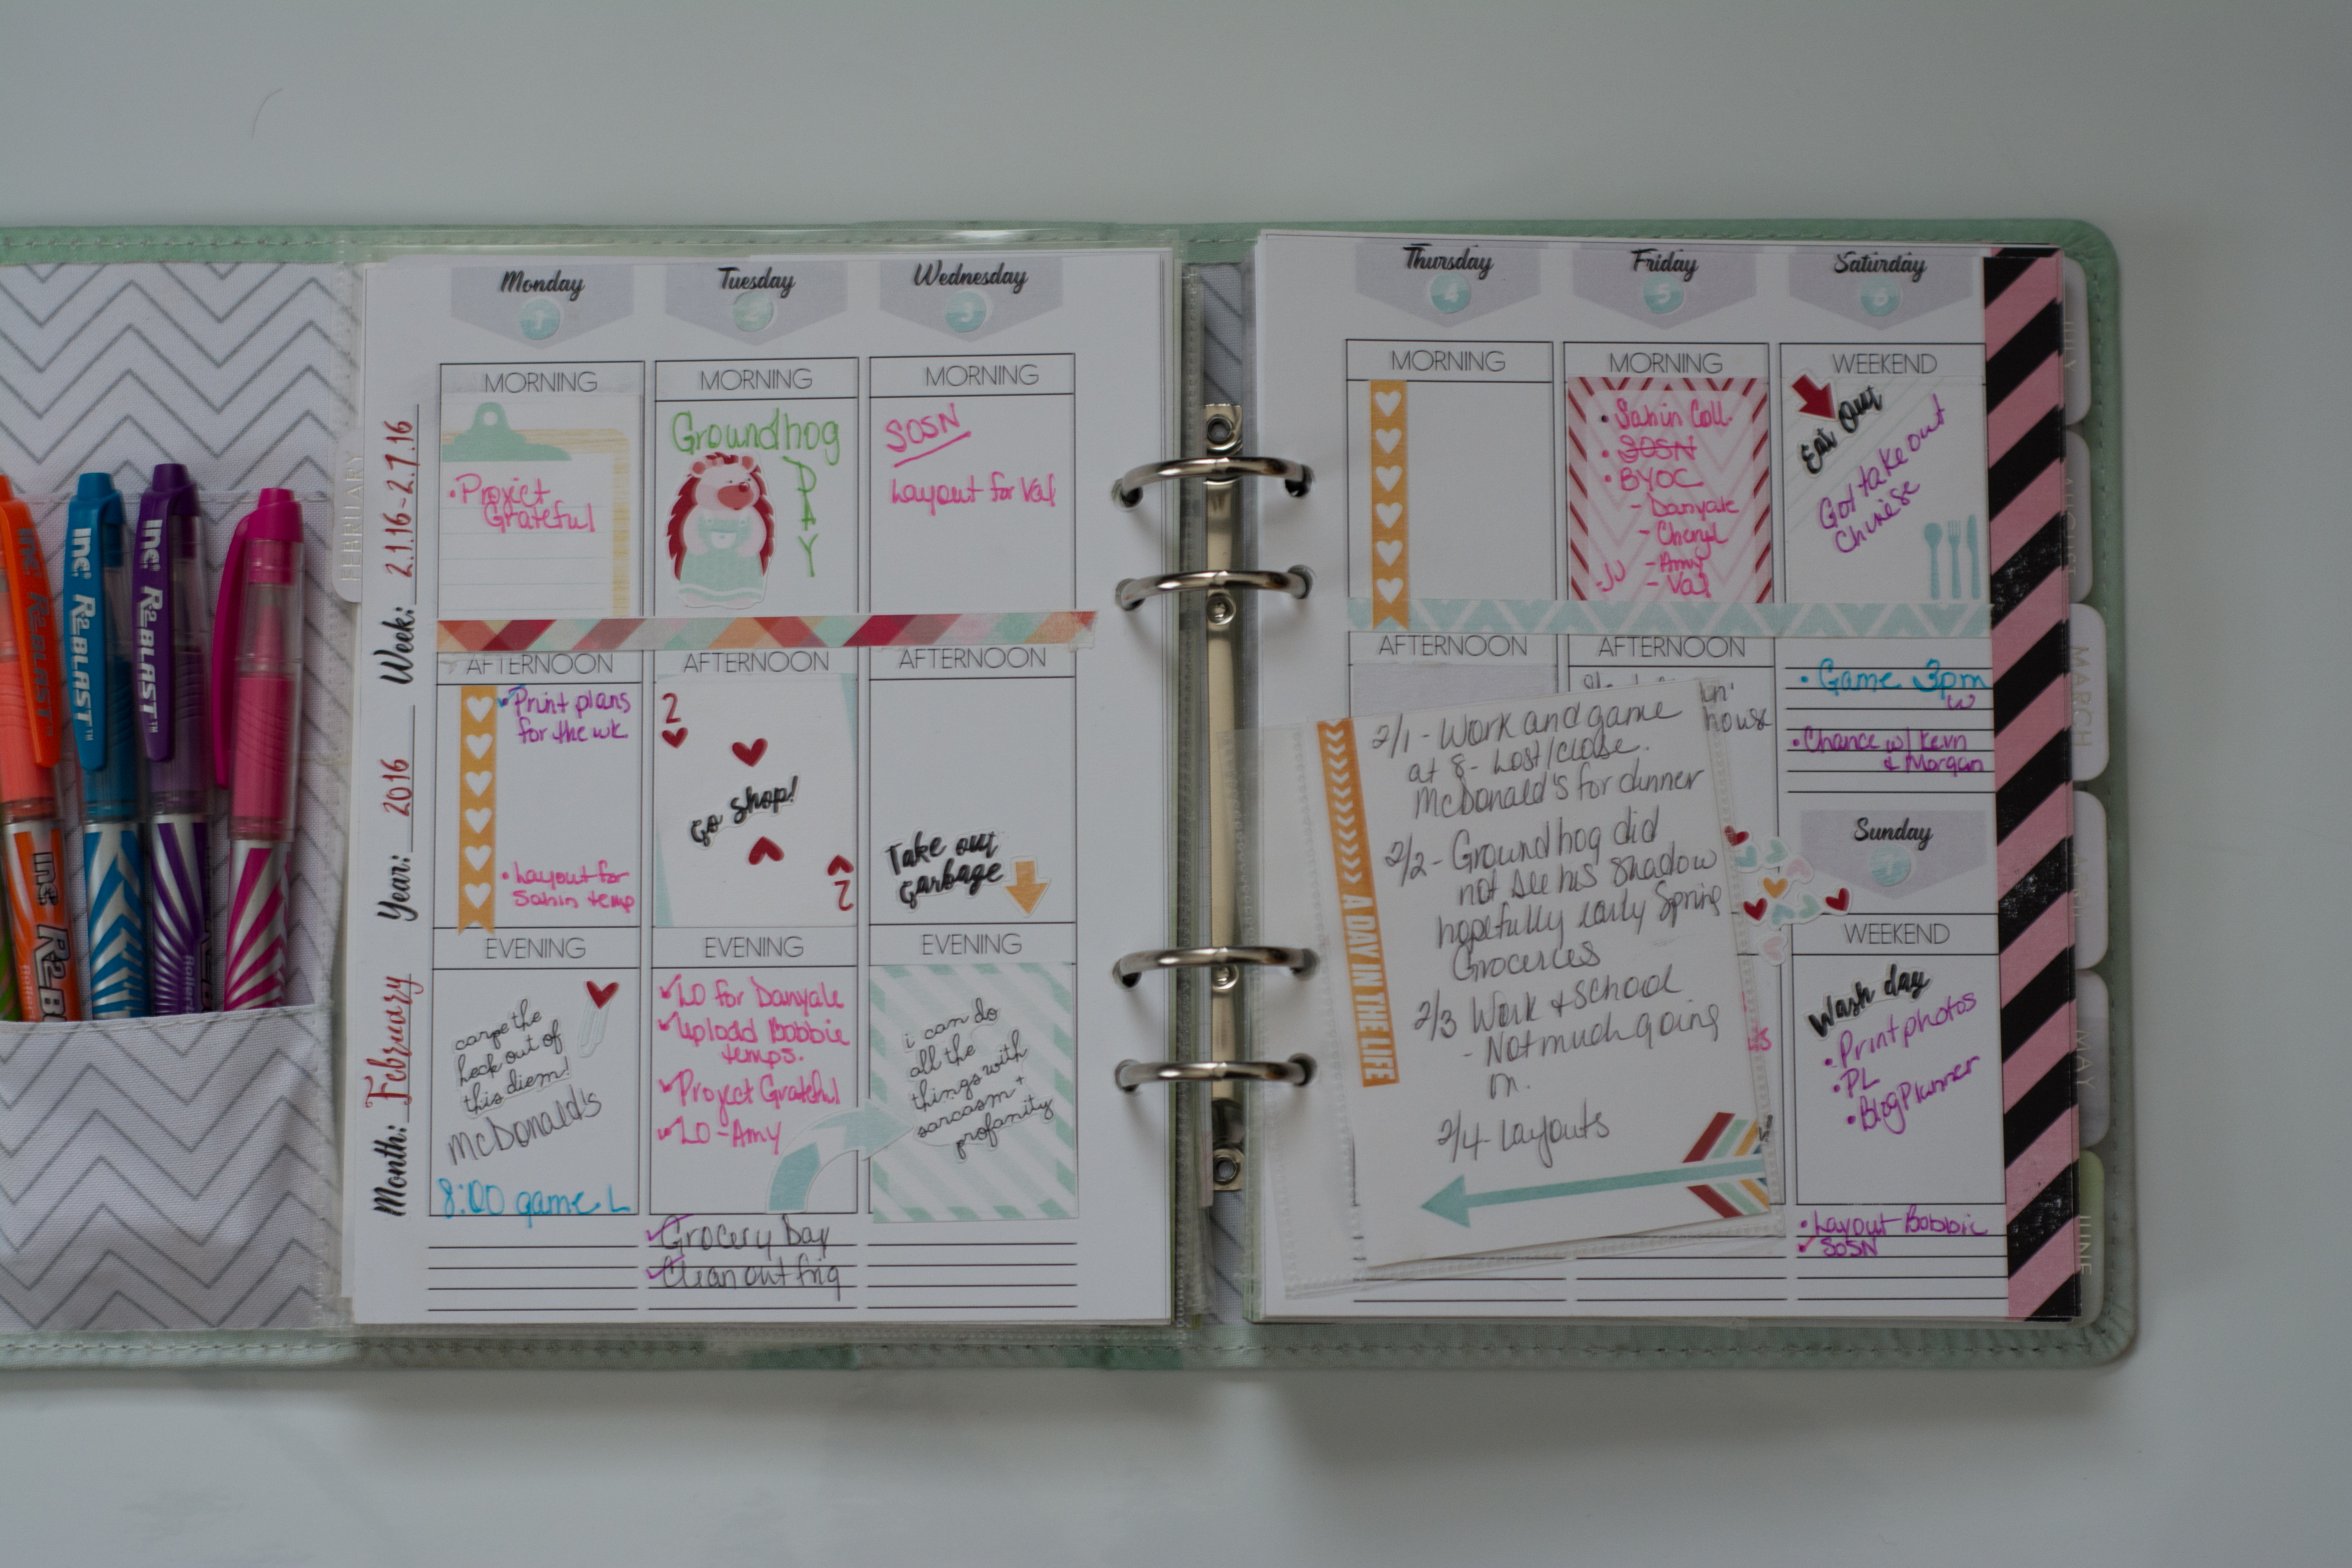 Monday
1
Tuesday
2
Wednesday
3
Week: 2.1.16-2.7.16
Year: 2016
Month: February
FEBRUARY
INC R2 BLAST
INC R2 BLAST
INC R2 BLAST
INC
MORNING
• Project
Grateful
AFTERNOON
Print plans
for the wk.
• Layout for
Sahin temp
EVENING
carpe the
heck out of
this diem!
McDonald's
8:00 game L
MORNING
Groundhog
DAY
AFTERNOON
2
Go shop!
2
EVENING
LO for Danyale
Upload Bobbie
temps.
Project Grateful
LO - Amy
Grocery Day
Clean out frig
MORNING
SOSN
Layout for Val
AFTERNOON
Take out
garbage
EVENING
i can do
all the
things with
sarcasm +
profanity
Thursday
4
Friday
5
Saturday
6
MORNING
AFTERNOON
MORNING
• Sahin Coll.
• SOSN
• BYOC
- Danyale
- Cheryl
- Amy
- Val
AFTERNOON
house
WEEKEND
Eat Out
Got take out
Chinese
• Game 3pm
W
• Chance w/ Kevin
& Morgan
Sunday
7
WEEKEND
Wash day
• Print photos
• PL
• Blog Planner
• Layout Bobbie
SOSN
A DAY IN THE LIFE
2/1 - Work and game
at 8 - Lost/close.
McDonald's for dinner
2/2 - Groundhog did
not see his shadow
hopefully early Spring
Groceries
2/3 Work + School
- Not much going
on.
2/4 - Layouts
JULY
AUGUST
MARCH
MAY
JUNE